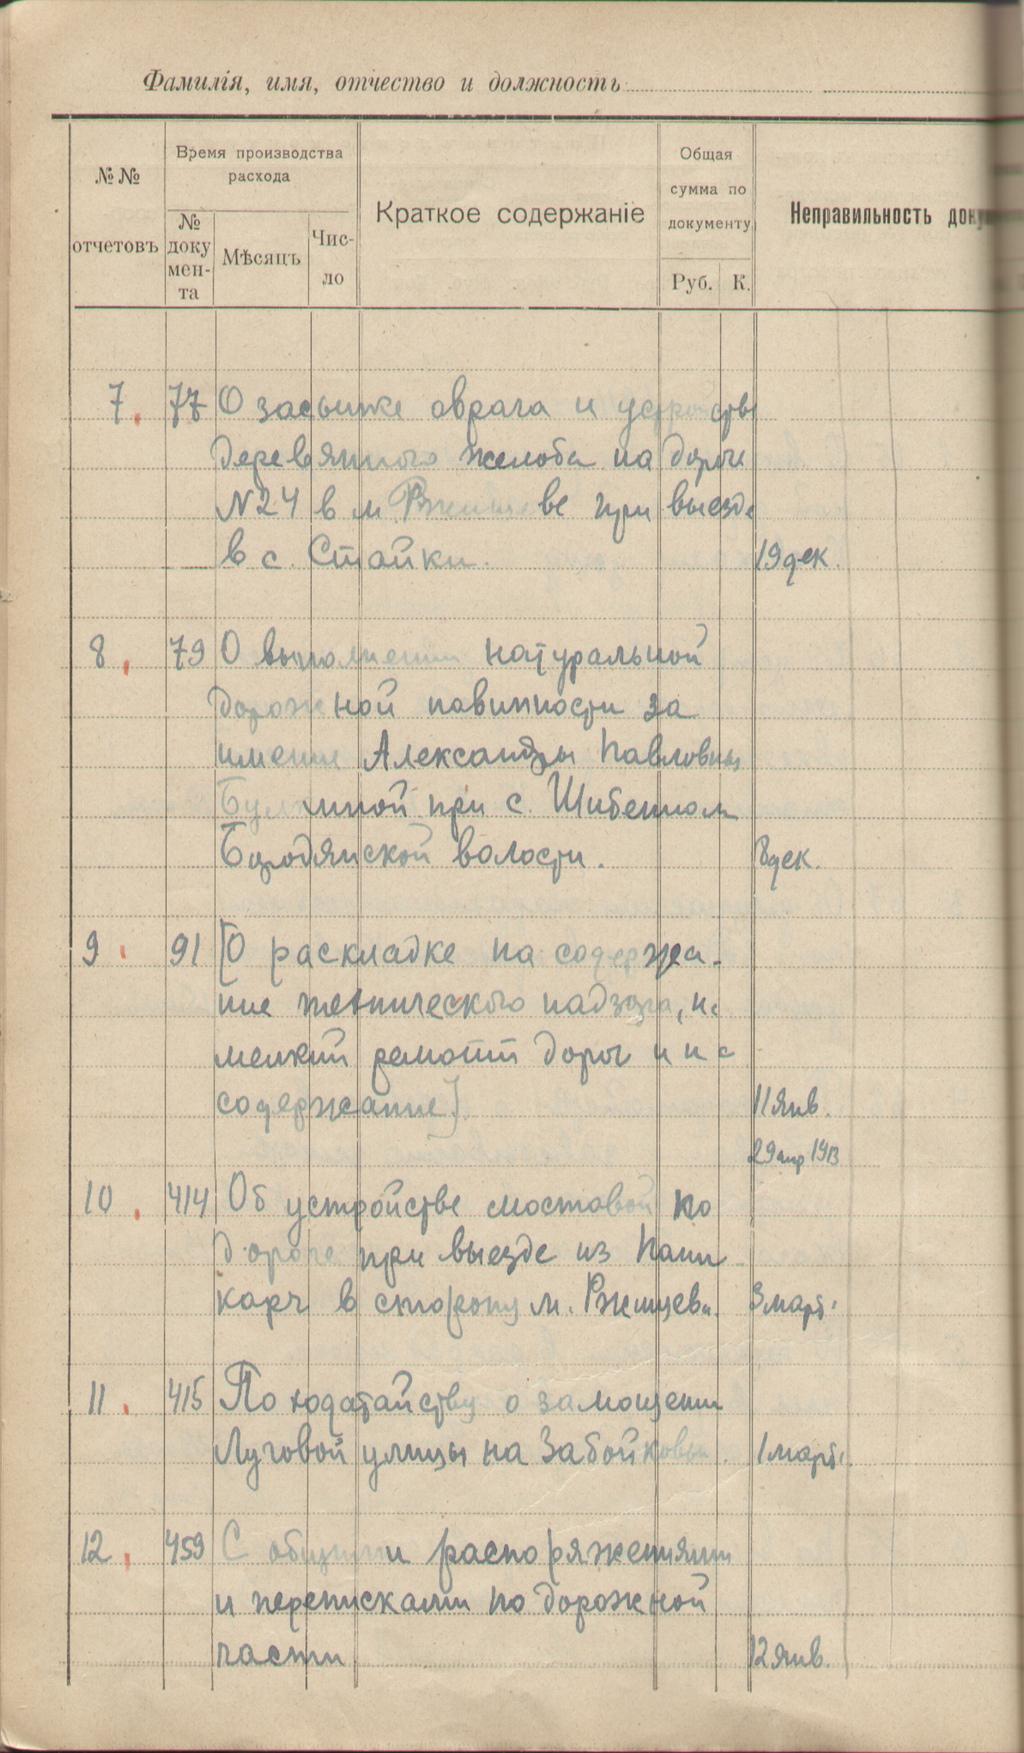 Фамилія, имя, отчество и должность
№№ отчетовъ
Время производства расхода
№ доку мен- та
Мѣсяцъ
Чис- ло
Краткое содержаніе
Общая сумма по документу
Руб. К.
Неправильность доку
7. 77 О засыпке оврага и устройстве
деревянного желоба на дороге
N24 в м Ржищеве при выезде
в с. Стайки. 19 дек.
8. 79 О выполнении натуральной
дорожной повинности за
имение Александры Павловны
при с. Шибенном
Бородянской волости. 8 дек.
9. 91 [О раскладке на содержа-
ние технического надзора, на
мелкий ремонт дорог и на
содержание]. 11 янв.
29 апр 1913
10. 414 Об устройстве мостовой по
дороге при выезде из
в сторону м. Ржищева. 3 март.
11. 415 По ходатайству о замощении
Луговой улицы на Забойковы. 1 март.
12. 459 С общими распоряжениями
и переписками по дорожной
части 12 янв.